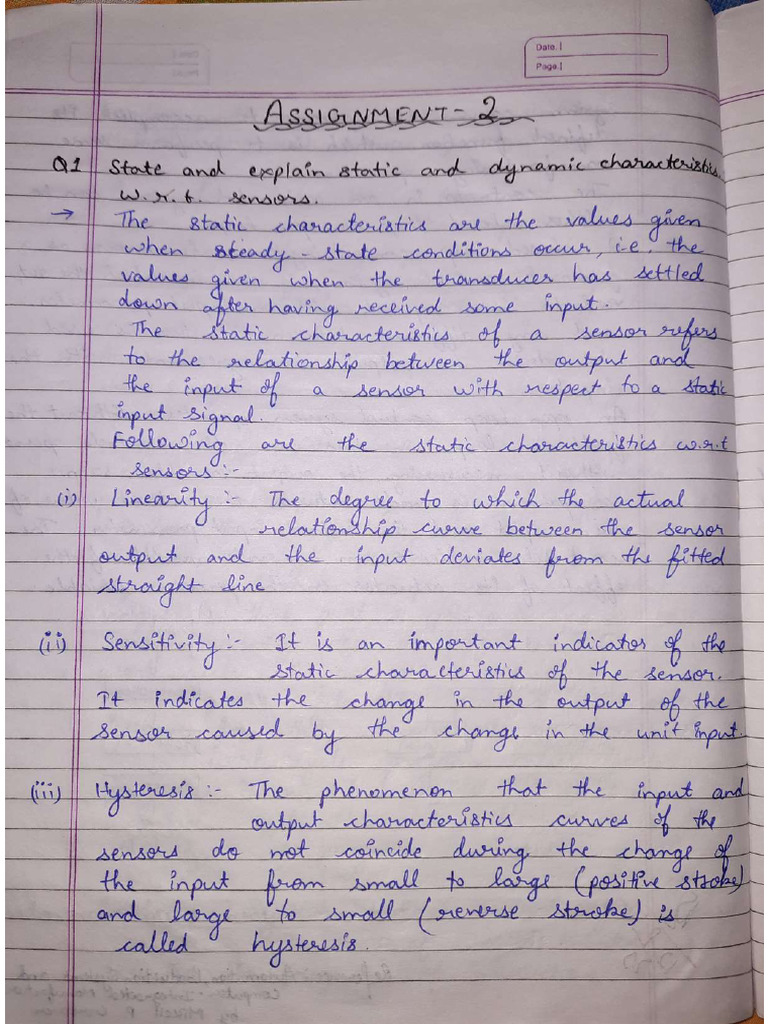 Date.
Page.
ASSIGNMENT-2
Q1 State and explain static and dynamic characteristics
w.r.t. sensors.
→ The static characteristics are the values given
when steady-state conditions occur, i.e. the
values given when the transducer has settled
down after having received some input.
The static characteristics of a sensor refers
to the relationship between the output and
the input of a sensor with respect to a static
input signal.
Following are the static characteristics w.r.t
sensors:-
(i) Linearity:- The degree to which the actual
relationship curve between the sensor
output and the input deviates from the fitted
straight line
(ii) Sensitivity:- It is an important indicator of the
static characteristics of the sensor.
It indicates the change in the output of the
sensor caused by the change in the unit input.
(iii) Hysteresis:- The phenomenon that the input and
output characteristics curves of the
sensors do not coincide during the change of
the input from small to large (positive stroke)
and large to small (reverse stroke) is
called hysteresis.